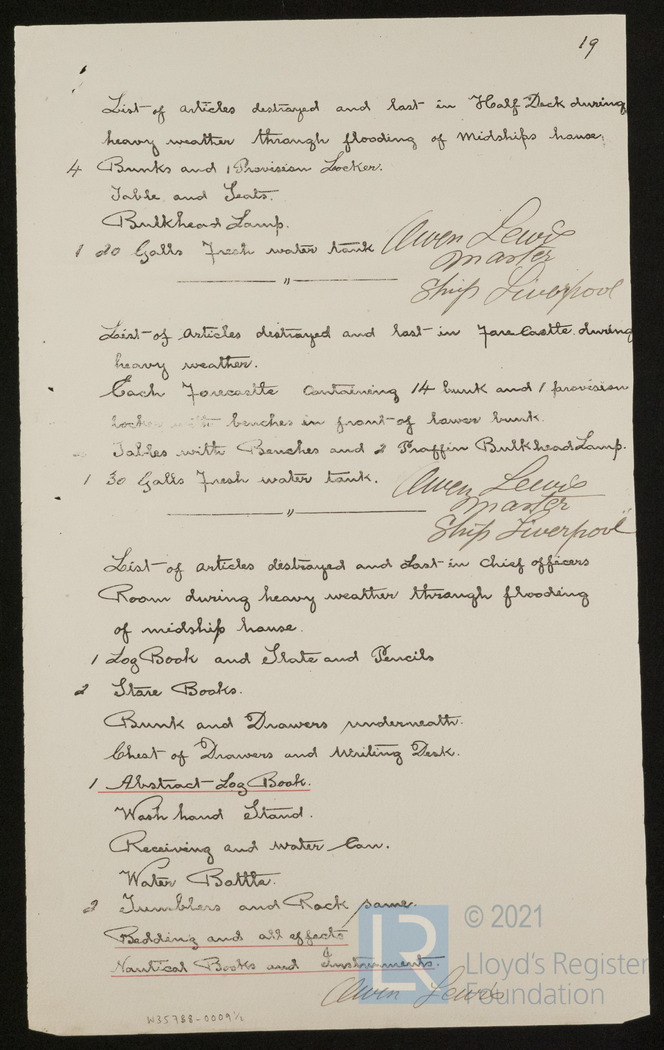 19
List of articles destroyed and lost in Half Deck during
heavy weather through flooding of midships house,
4 Bunks and 1 Provision Locker.
Table and Seats.
Bulkhead Lamp.
1 20 Galls Fresh water tank
Owen Lewis
Master
Ship Liverpool
List of articles destroyed and lost in Fore Castle during
heavy weather.
Each Forecastle containing 14 bunk and 1 provision
locker with benches in front of lower bunk.
Tables with Benches and 2 Praffin Bulkhead Lamp.
1 30 Galls Fresh water tank.
Owen Lewis
Master
Ship Liverpool
List of articles destroyed and Lost in Chief officers
Room during heavy weather through flooding
of midship house.
1 Log Book and Slate and Pencils
2 Store Books.
Bunk and Drawers underneath.
Chest of Drawers and Writing Desk.
1 Abstract Log Book.
Wash hand Stand.
Receiving and water Can.
Water Bottle.
2 Tumblers and Rack same.
Bedding and all effects
Nautical Books and Instruments.
Owen Lewis
© 2021
LR
Lloyd's Register
Foundation
W35788-0009½